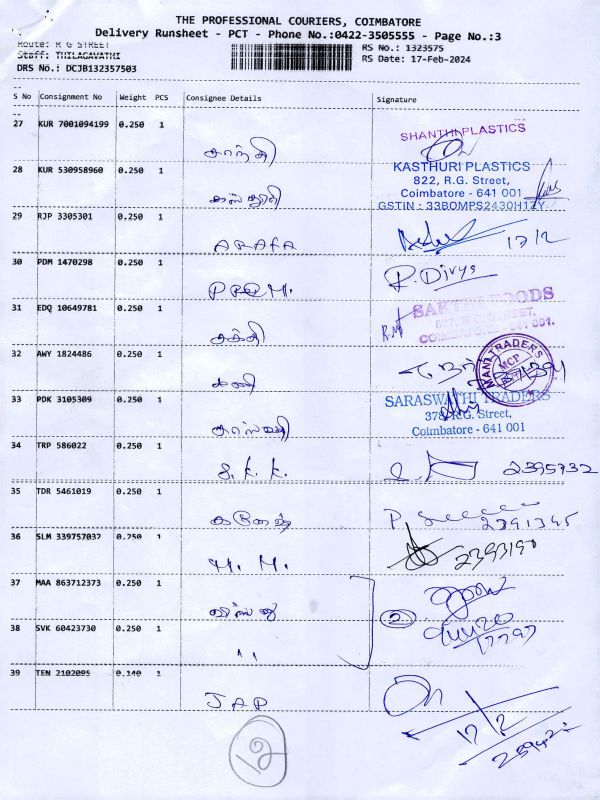 THE PROFESSIONAL COURIERS, COIMBATORE
Delivery Runsheet - PCT - Phone No.:0422-3505555 - Page No.:3
Route: R G STREET
Staff: THILAGAVATHI
DRS No.: DCJB132357503
RS No.: 1323575
RS Date: 17-Feb-2024
S No Consignment No Weight PCS Consignee Details Signature
27 KUR 7001094199 0.250 1
காந்தி
SHANTHI PLASTICS
28 KUR 530958960 0.250 1
கஸ்தூரி
KASTHURI PLASTICS
822, R.G. Street,
Coimbatore - 641 001
GSTIN : 33BOMPS2430H1ZY
29 RJP 3305301 0.250 1
ARAFA
17/2
30 PDM 1470298 0.250 1
PREM.
R. Divya
31 EDQ 10649781 0.250 1
சக்தி
SAKTHI FOODS
COIMBATORE - 641 001.
32 AWY 1824486 0.250 1
மணி
MANI TRADERS
33 PDK 3105309 0.250 1
SARASWATHI TRADERS
376, R.G. Street,
Coimbatore - 641 001
34 TRP 586022 0.250 1
S. K. K.
2395732
35 TDR 5461019 0.250 1
கணேஷ்
36 SLM 339757032 0.250 1
M. M.
37 MAA 863712373 0.250 1
2
38 SVK 60423730 0.250 1
"
39 TEN 2102095 0.140 1
JAP
17/2
12